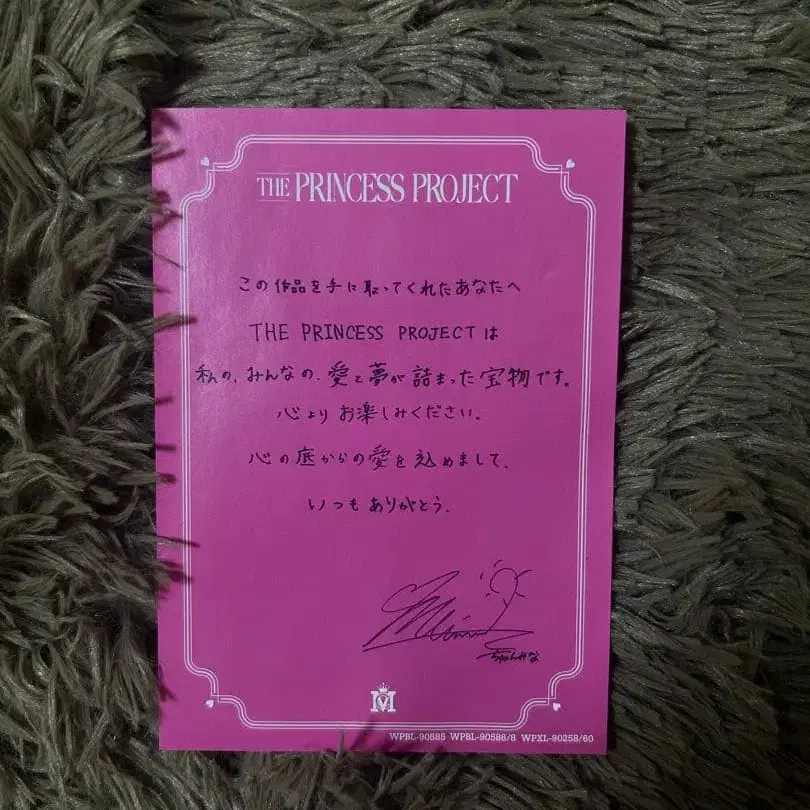 THE PRINCESS PROJECT
この作品を手に取ってくれたあなたへ
THE PRINCESS PROJECTは
私の、みんなの、愛と夢が詰まった宝物です。
心よりお楽しみください。
心の底からの愛を込めまして、
いつもありがとう。
ちゃんみな
WPBL-90585 WPBL-90586/8 WPXL-90258/60